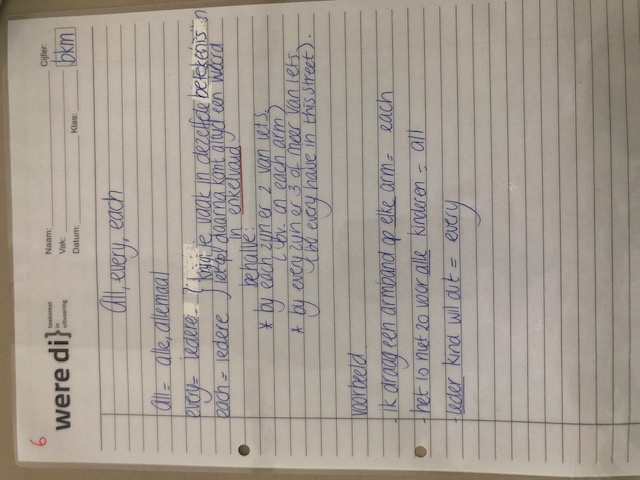 6
were di} toekomst in uitvoering
Naam:
Vak:
Datum:
Klas:
Cijfer:
bkm
All, every, each
All = alle, allemaal
every = iedere krijg je vaak in dezelfde betekenis
each = iedere daarna komt altijd een woord
in enkelvoud
behalve:
* by each zijn er 2 van iets.
(bv. on each arm)
* by every zijn er 3 of meer van iets
(bv every house in this street).
voorbeeld
- ik draag een armband op elke arm = each
- het is niet zo voor alle kinderen = all
- ieder kind wil dit = every